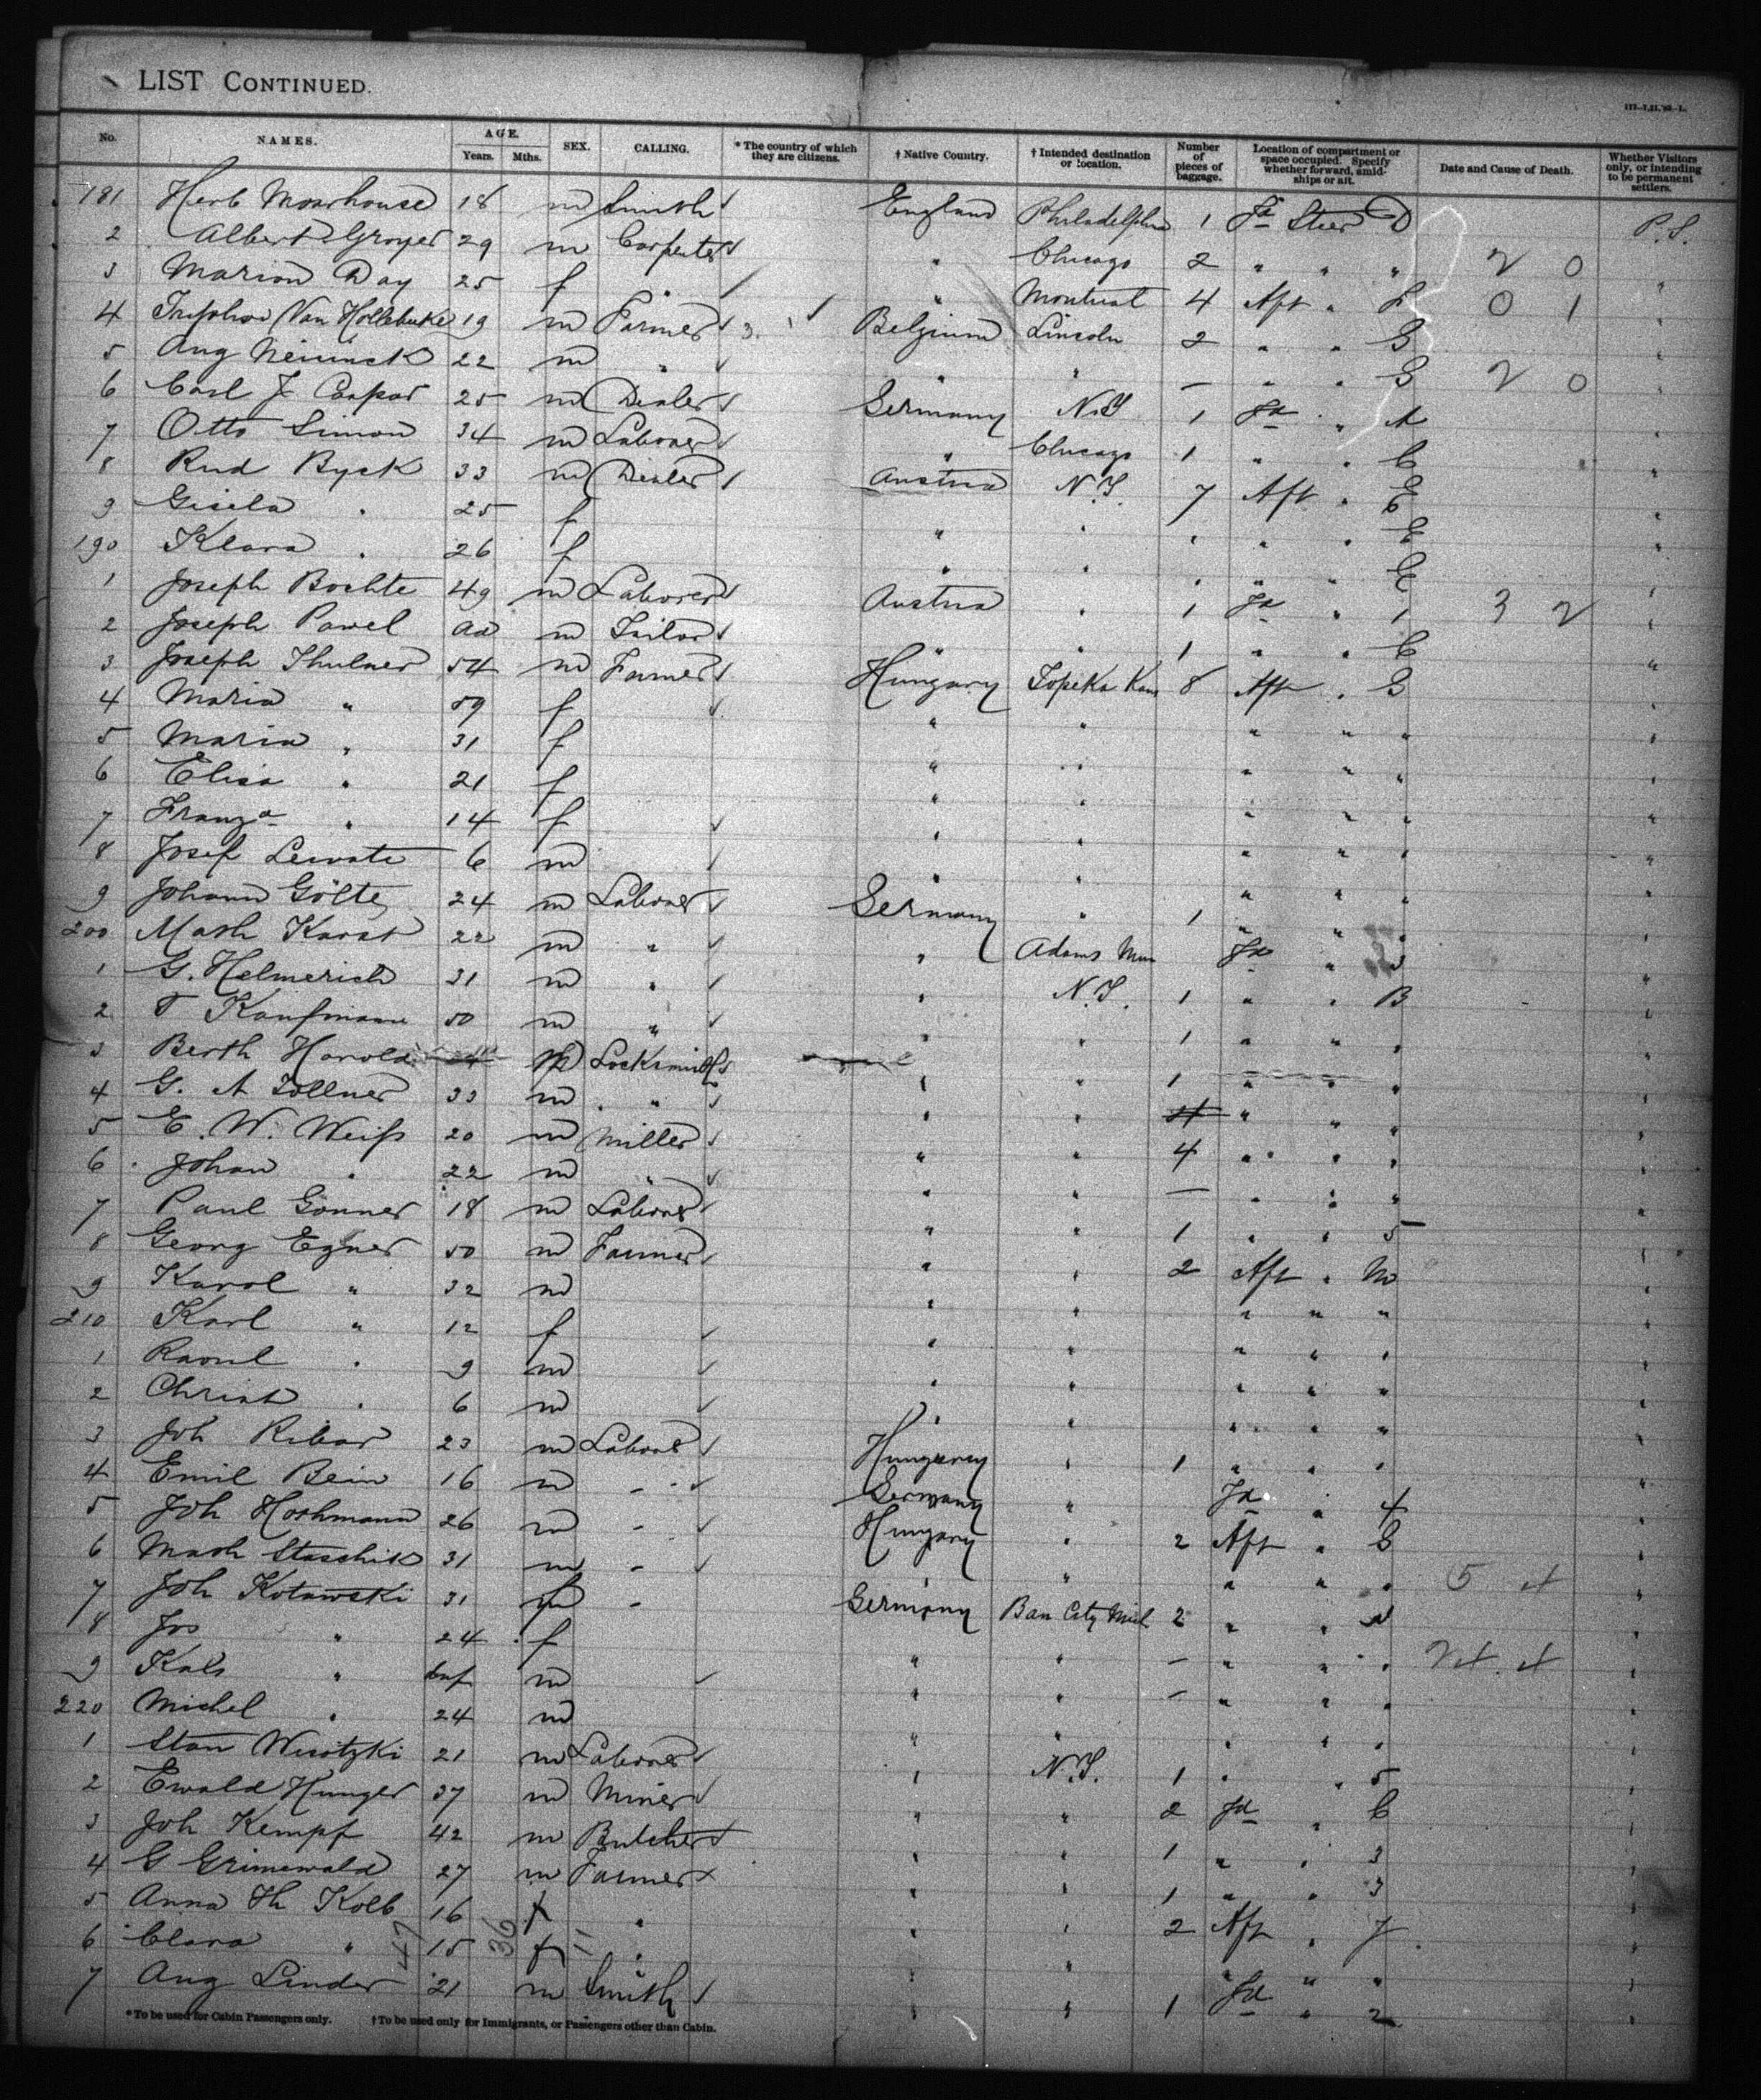 LIST CONTINUED.
No. NAMES. AGE. Years. Mths. SEX. CALLING. * The country of which they are citizens. † Native Country. † Intended destination or location. Number of pieces of baggage. Location of compartment or space occupied. Specify whether forward, amidships or aft. Date and Cause of Death. Whether Visitors only, or intending to be permanent settlers.
181 Herb Moorhouse 18 m Smith England Philadelphia 1 Fd Steer D P.S.
2 Albert 29 m Carpenter " Chicago 2 " " " 2 0 "
3 Marion Day 25 f " " Montreal 4 Aft " 0 1 "
4 Van Hollebuke 19 m Farmer 3. Belgium Lincoln 2 " " G "
5 Aug 22 m " " " — " " G 2 0 "
6 Carl J. Caspar 25 m Dealer Germany N.Y 1 Fd " A "
7 Otto Simon 34 m Laborer " Chicago 1 " " C "
8 Rud Byck 33 m Dealer Austria N.Y. 7 Aft " E "
9 Gisela " 25 f " " " " " E "
190 Klara " 26 f " " " " " E "
1 Joseph Bochte 49 m Laborer Austria " 1 Fd " 1 3 2 "
2 Joseph Pawel m Tailor " " 1 " " C "
3 Joseph Thulner 54 m Farmer Hungary Topeka Kans 8 Aft " G "
4 Maria " 59 f " " " " " "
5 Maria " 31 f " " " " " "
6 Elisa " 21 f " " " " " "
7 Franza " 14 f " " " " " "
8 Josef 6 m " " " " " "
9 Johann Gölte 24 m Laborer Germany " 1 " " " "
200 Math Karat 22 m " " Adams Fd " 3 "
1 G. Helmerich 31 m " " N.Y. 1 " " B "
2 T Kaufmann 50 m " " " 1 " " " "
3 Berth Harold m Locksmith " " 1 " " " "
4 G. A Zollner 33 m " " " 4 " " " "
5 E. W. Weiss 20 m Miller " " 4 " " " "
6 Johan " 22 m " " " — " " " "
7 Paul Gonner 18 m Laborer " " 1 " " 5 "
8 Georg Egner 50 m Farmer " " 2 Aft " "
9 Karol " 32 m " " " " " "
210 Karl " 12 f " " " " " "
1 Raoul " 9 m " " " " " "
2 Christ " 6 m " " " " " "
3 Joh Ribar 23 m Laborer Hungary " 1 " " " "
4 Emil Bein 16 m " Germany " Fd " 4 "
5 Joh Hothmann 26 m " Hungary " 2 Aft " G "
6 Math Staschik 31 m " " " " " " 5 4 "
7 Joh Kotowski 31 m " Germany Bay City Mich 2 " " "
8 Jos " 24 f " " — " " " 24 4 "
9 " m " " — " " " "
220 Michel " 24 m " " " " " "
1 Stan Wisotzki 21 m Laborer " N.Y. 1 " " 5 "
2 Ewald Hunger 37 m Miner " " 2 Fd " C "
3 Joh Kempf 42 m Butcher " " 1 " " 3 "
4 G Grimewald 27 m Farmer " " 1 " " 3 "
5 Anna Th Kolb 16 f " " " 2 Aft " 7 "
6 Clara " 15 f " " " " " " "
7 Aug Linder 21 m Smith " " 1 Fd " 2 "
47 36 11
* To be used for Cabin Passengers only. † To be used only for Immigrants, or Passengers other than Cabin.